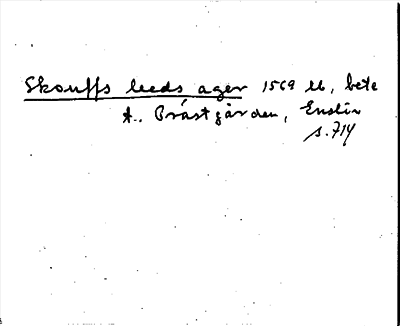 Skouffs leeds ager 1569 ll, bete
t. Prästgården, Enslin
s. 714